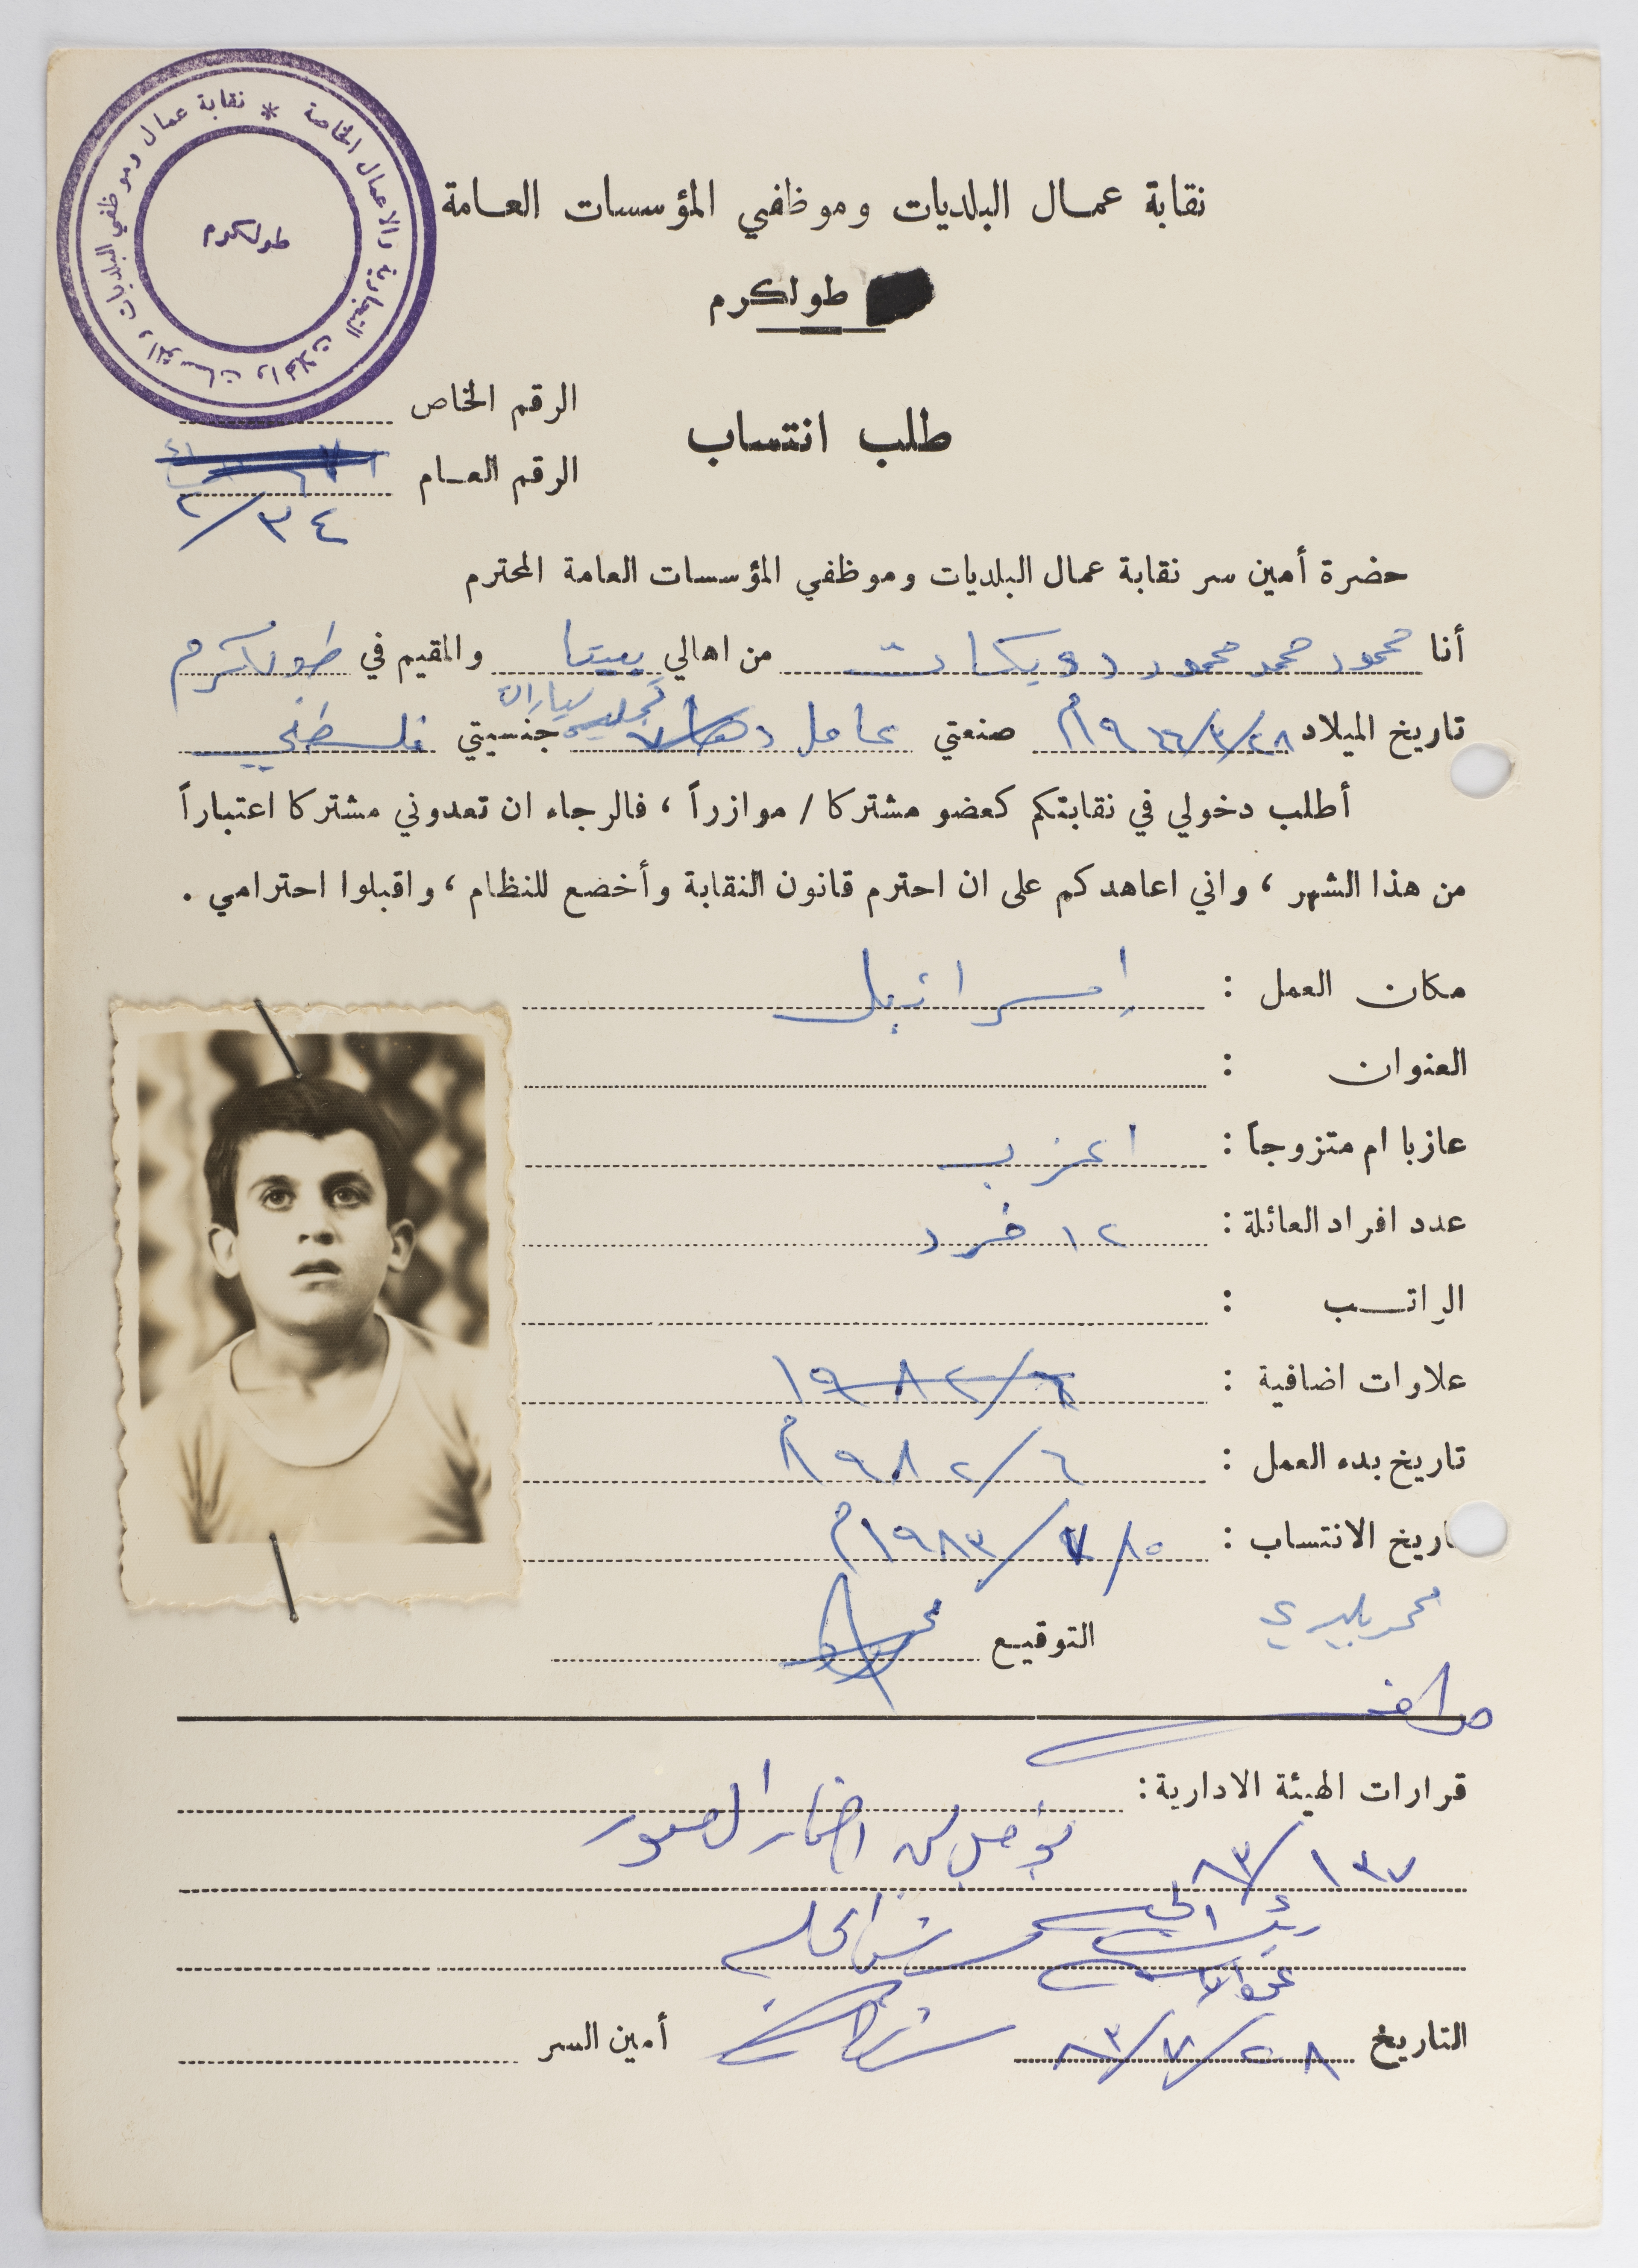 نقابة عمال وموظفي البلديات والمؤسسات والمحلات التجارية والاعمال الخاصة *
طولكرم
نقابة عمـال البلديات وموظفي المؤسسات العـامة
طولكرم
الرقم الخاص
طلب انتساب
الرقم العـام
٣٤/٢
حضرة أمين سر نقابة عمال البلديات وموظفي المؤسسات العامة المحترم
أنا محمود محمد محمود دويكات من اهالي بيتا والمقيم في طولكرم
تاريخ الميلاد ٢٨/٣/١٩٦٦م صنعتي عامل تجليس سيارات جنسيتي فلسطيني
أطلب دخولي في نقابتكم كعضو مشتركا / موازراً ، فالرجاء ان تعدوني مشتركا اعتباراً
من هذا الشهر ، واني اعاهدكم على ان احترم قانون النقابة وأخضع للنظام ، واقبلوا احترامي .
مكان العمل : إسرائيل
العنوان :
عازبا ام متزوجاً : اعزب
عدد افراد العائلة : ١٢ فرد
الراتـــب :
علاوات اضافية : ٦/١٩٨٢
تاريخ بدء العمل : ٦/١٩٨٢م
اريخ الانتساب : ١٥/٧/١٩٨٣م
التوقيـع
قرارات الهيئة الادارية :
يؤجل لحين احضار الصور
١٣٧/٨٣
التاريخ ٢٨/٧/٨٣ أمين السر